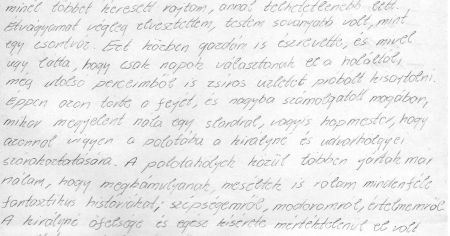 minél többet keresett rajtam, annál telhetetlenebb lett.
Étvágyamat végleg elvesztettem, testem soványabb volt, mint
egy csontváz. Ezt közben gazdám is észrevette, és mivel
úgy látta, hogy csak napok választanak el a haláltól,
még utolsó perceimből is zsíros üzletet próbált kisajtolni.
Éppen azon törte a fejét, és nagyba számolgatott magában,
mikor megjelent nála egy slardral, vagyis hopmester, hogy
azonnal vigyen a palotába a királyné és udvarhölgyei
szórakoztatására. A palotahölgyek közül többen jártak már
nálam, hogy megbámuljanak, meséltek is rólam mindenféle
fantasztikus históriákat; szépségemről, modoromról, értelmemről.
A királyné őfelsége és egész kísérete mértéktelenül el volt